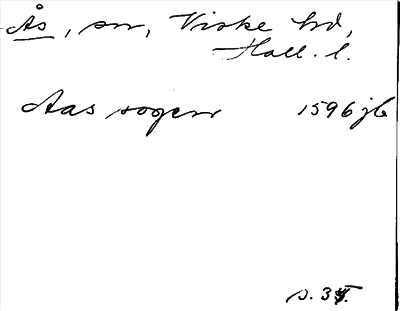 Ås, sn, Viske hd,
Hall. l.
Aas sogen 1596 jb
s. 3